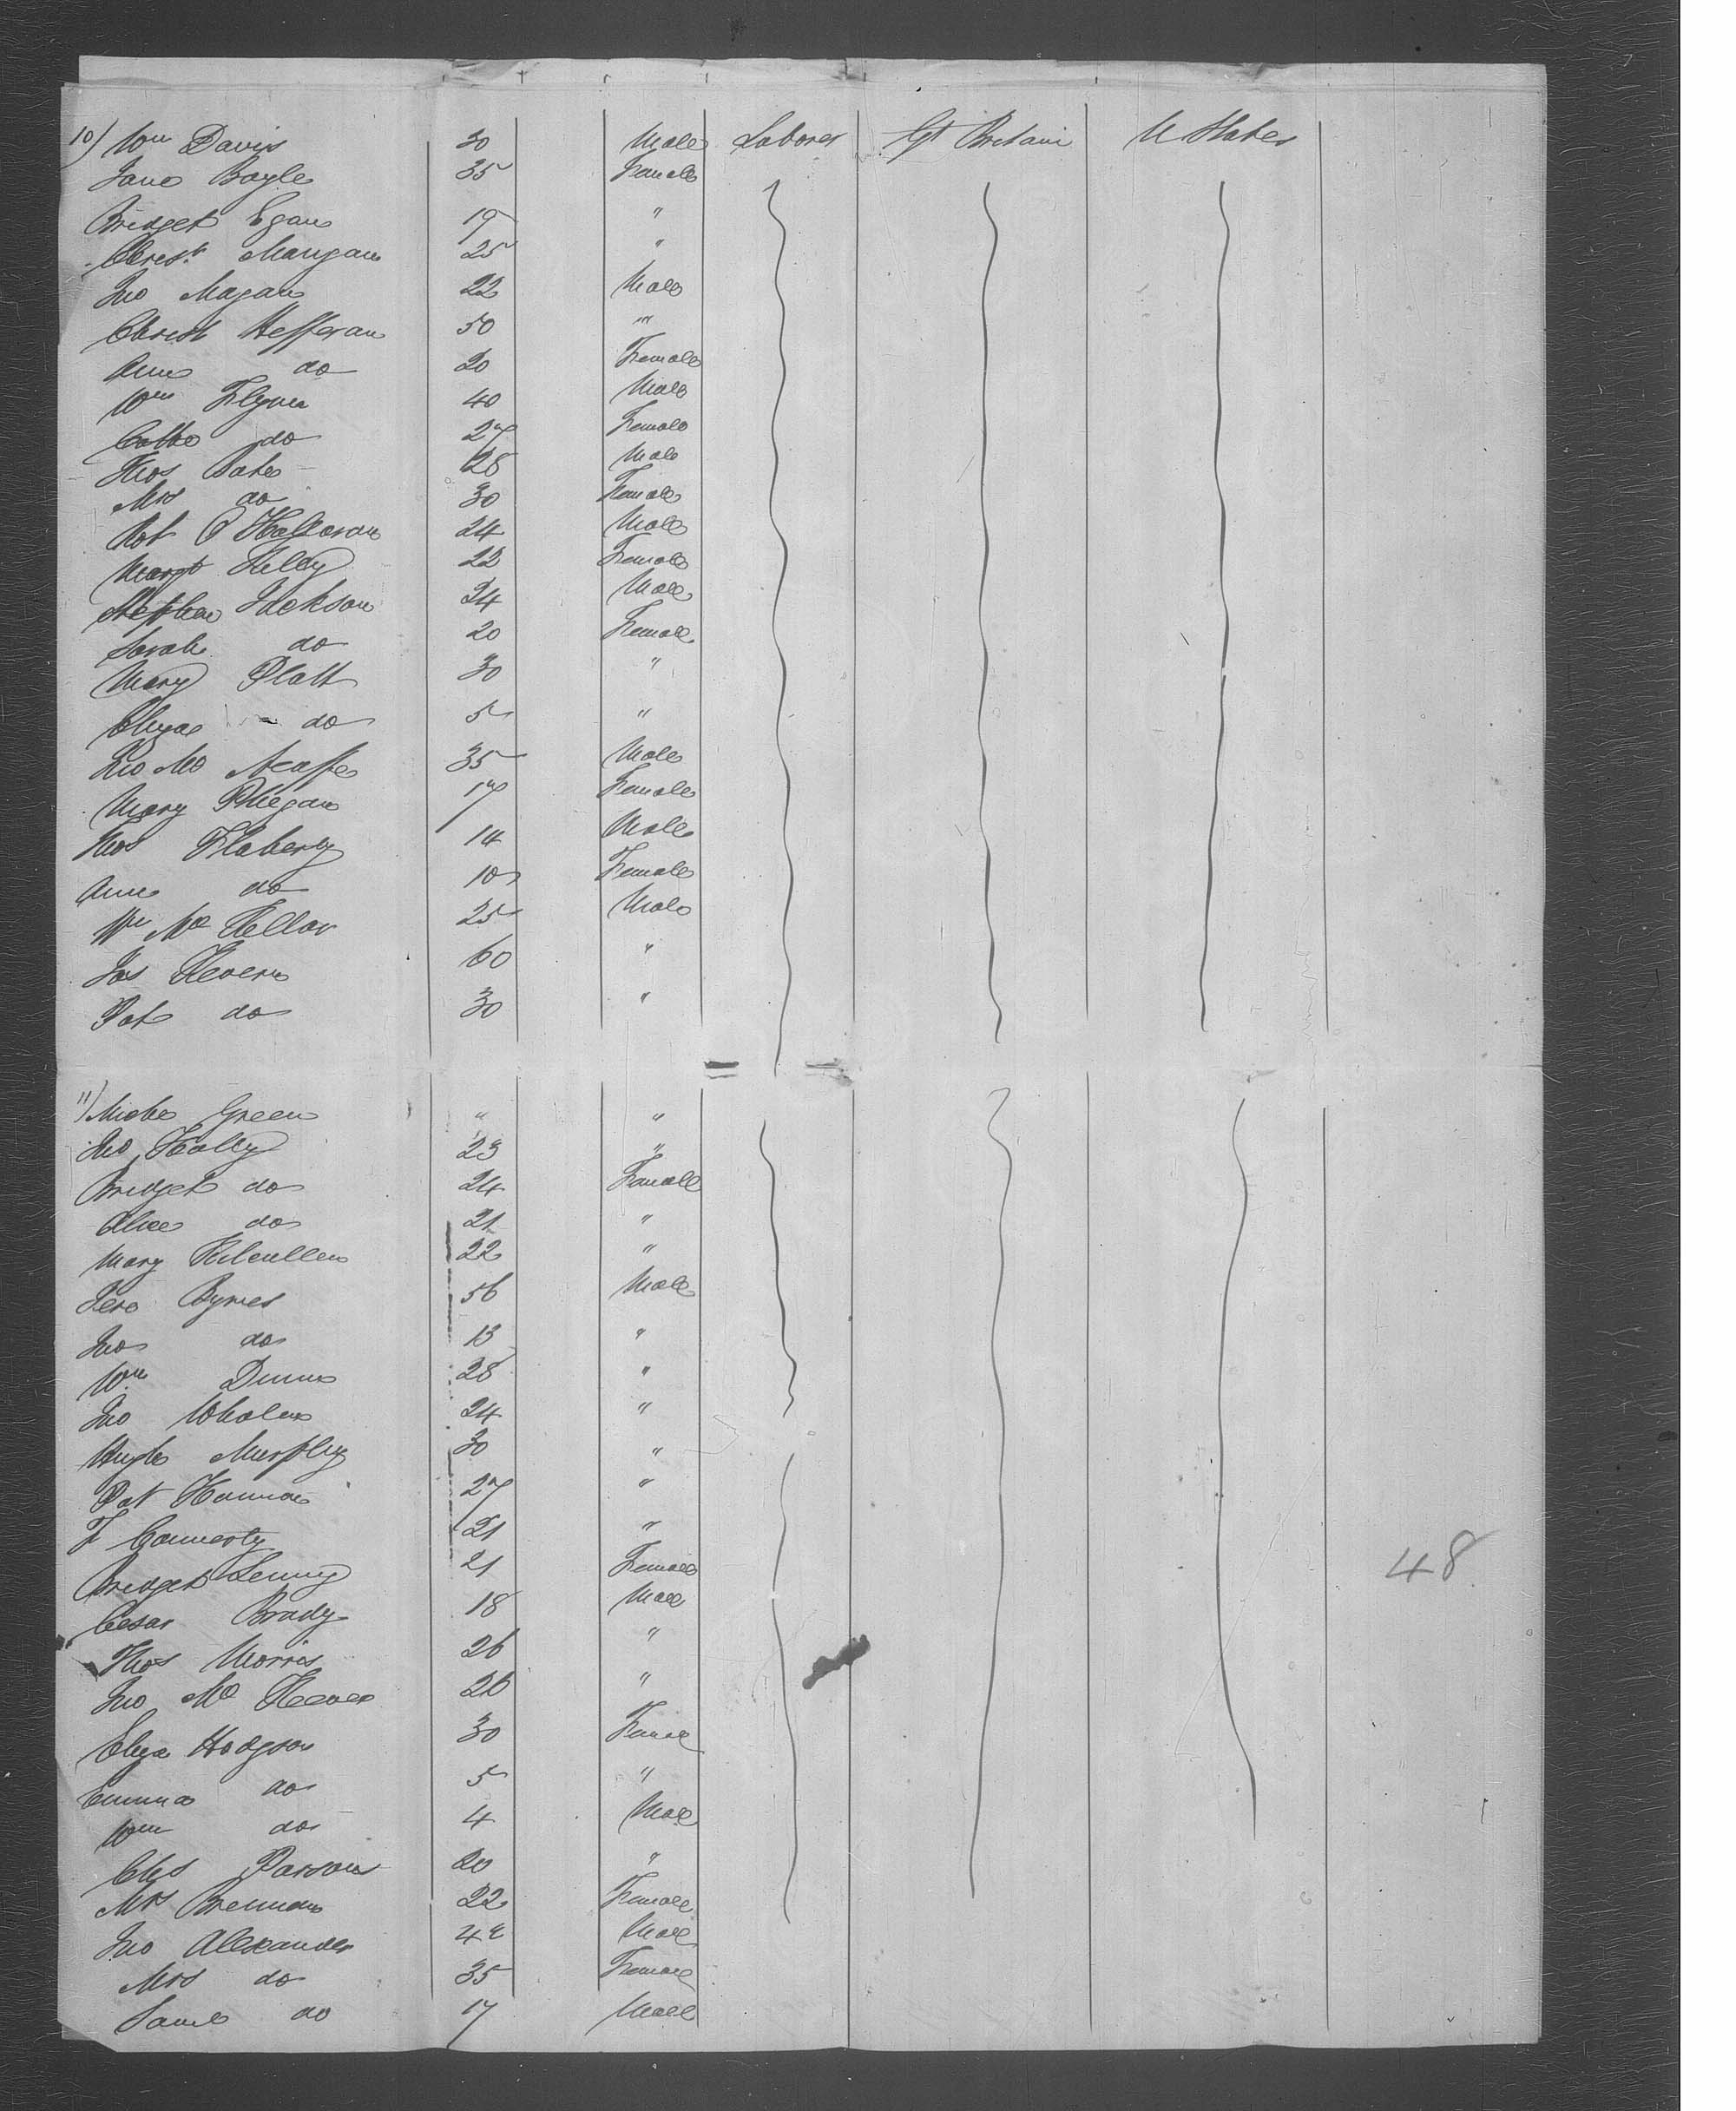 10) Wm Davis 30 Male Laborer Gt Britain U States
Jane Boyle 35 Female
Bridget Egan 19 "
Christ. Mangan 25 "
Jno Magan 22 Male
Christ Hefferan 50 "
Anne do 20 Female
Wm Flynn 40 Male
Cathe do 27 Female
Thos Bate 28 Male
Mrs do 30 Female
Rob O'Halloran 24 Male
Margt Kelly 22 Female
Stephen Jackson 24 Male
Sarah do 20 Female
Mary Platt 30 "
Eliza do 5 "
Jno Mc 35 Male
Mary 17 Female
Thos Flaherty 14 Male
Anne do 10 Female
Wm Mc Kellar 25 Male
Jas Kevern 60 "
Pat do 30 "
11) Miche Green " "
Jno Kelly 23 "
Bridget do 24 Female
Alice do 21 "
Mary Kilcullen 22 "
Byrnes 56 Male
Jno do 13 "
Wm Dunne 28 "
Jno Whalen 24 "
Hugh Murphy 30 "
Pat Hannan 27 "
T Connerty 21 "
Bridget 21 Female
Cesar Brady 18 Male
Thos Morris 26 "
Jno Mc 26 "
Eliza Hodgson 30 Female
Emma do 5 "
Wm do 4 Male
Chs Parsons 20 "
Mrs Brennan 22 Female
Jno Alexander 42 Male
Mrs do 35 Female
Saml do 17 Male
48